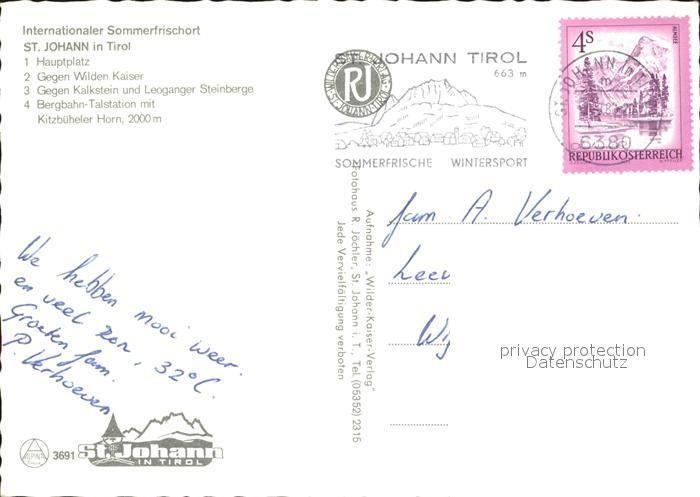 Internationaler Sommerfrischort
ST. JOHANN in Tirol
1 Hauptplatz
2 Gegen Wilden Kaiser
3 Gegen Kalkstein und Leoganger Steinberge
4 Bergbahn-Talstation mit
Kitzbüheler Horn, 2000 m
ST. JOHANN TIROL
663 m
RJ
SOMMERFRISCHE WINTERSPORT
4S
ALMSEE
REPUBLIK ÖSTERREICH
ST. JOHANN in T
6380
fam. A. Verhoeven.
Leeu
Wij
privacy protection
Datenschutz
We hebben mooi weer.
en veel zon, 32°C.
Groeten fam.
P. Verhoeven
Aufnahme: „Wilder-Kaiser-Verlag"
Fotohaus R. Jöchler, St. Johann i. T., Tel. (05352) 2315
Jede Vervielfältigung verboten
ALPINA
3691
St. Johann
IN TIROL